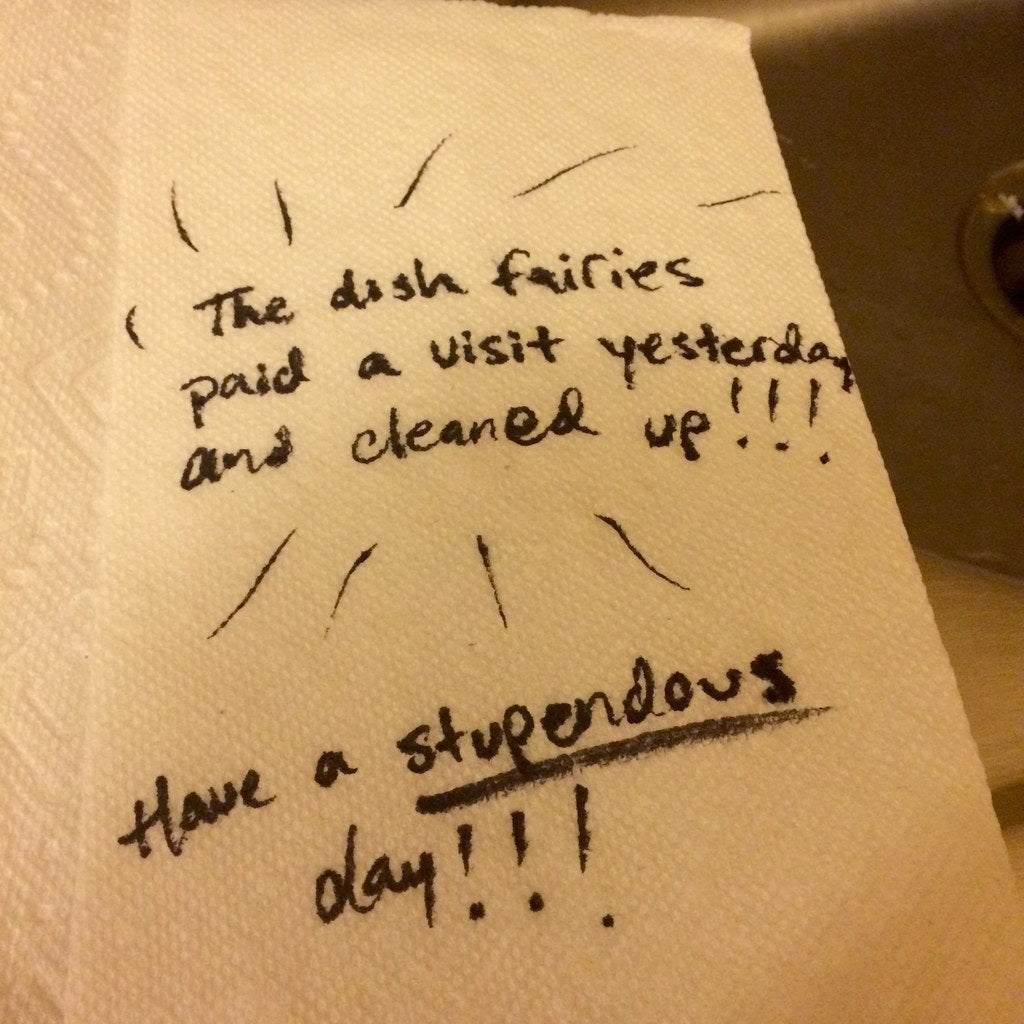 The dish fairies
paid a visit yesterday
and cleaned up!!!
Have a stupendous
day!!!